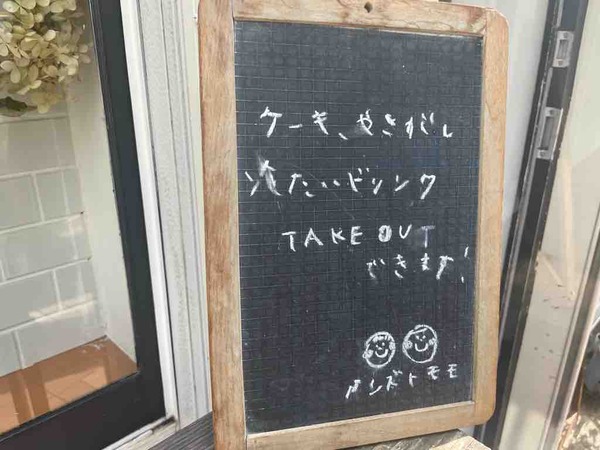 ケーキ、やきがし
冷たいドリンク
TAKE OUT
できます!